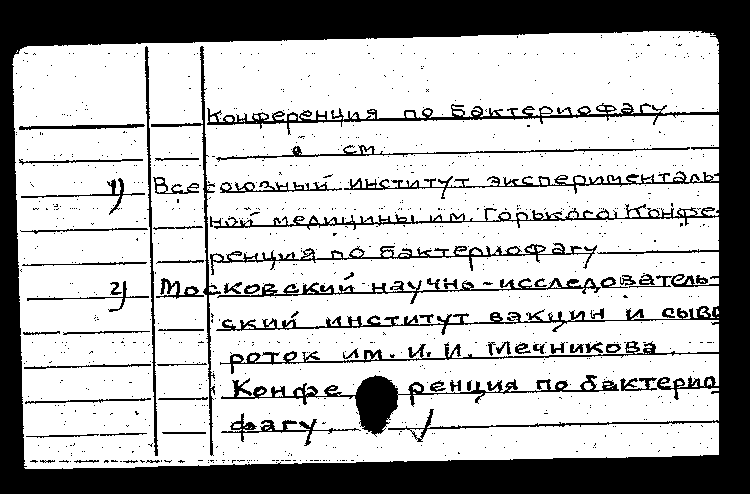 Конференция по бактериофагу
см.
1) Всесоюзный институт эксперименталь-
ной медицины им. Горького. Конфе-
ренция по бактериофагу
2) Московский научно-исследователь-
ский институт вакцин и сыво
роток им. И. И. Мечникова.
Конфе ренция по бактерио
фагу.